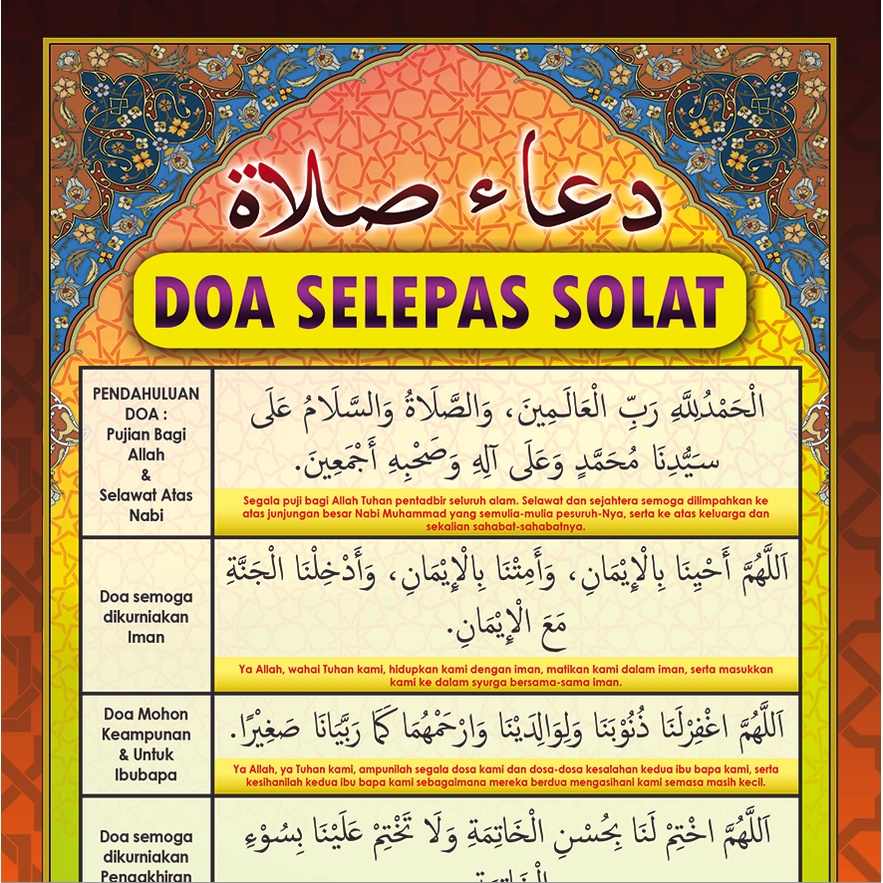 دعاء صلاة
DOA SELEPAS SOLAT
PENDAHULUAN
DOA :
Pujian Bagi
Allah
&
Selawat Atas
Nabi
الْحَمْدُلِلَّهِ رَبِّ الْعَالَـمِينَ، وَالصَّلَاةُ وَالسَّلَامُ عَلَى
سَيِّدِنَا مُحَمَّدٍ وَعَلَى آلِهِ وَصَحْبِهِ أَجْمَعِينَ.
Segala puji bagi Allah Tuhan pentadbir seluruh alam. Selawat dan sejahtera semoga dilimpahkan ke
atas junjungan besar Nabi Muhammad yang semulia-mulia pesuruh-Nya, serta ke atas keluarga dan
sekalian sahabat-sahabatnya.
Doa semoga
dikurniakan
Iman
اَللَّهُمَّ أَحْيِنَا بِالْإِيْمَانِ، وَأَمِتْنَا بِالْإِيْمَانِ، وَأَدْخِلْنَا الْجَنَّةِ
مَعَ الْإِيْمَانِ.
Ya Allah, wahai Tuhan kami, hidupkan kami dengan iman, matikan kami dalam iman, serta masukkan
kami ke dalam syurga bersama-sama iman.
Doa Mohon
Keampunan
& Untuk
Ibubapa
اَللَّهُمَّ اغْفِرْلَنَا ذُنُوْبَنَا وَلِوَالِدَيْنَا وَارْحَمْهُمَا كَمَا رَبَّيَانَا صَغِيْرًا.
Ya Allah, ya Tuhan kami, ampunilah segala dosa kami dan dosa-dosa kesalahan kedua ibu bapa kami, serta
kesihanilah kedua ibu bapa kami sebagaimana mereka berdua mengasihani kami semasa masih kecil.
Doa semoga
dikurniakan
Pengakhiran
اَللَّهُمَّ اخْتِمْ لَنَا بِحُسْنِ الْخَاتِمَةِ وَلَا تَخْتِمْ عَلَيْنَا بِسُوْءِ